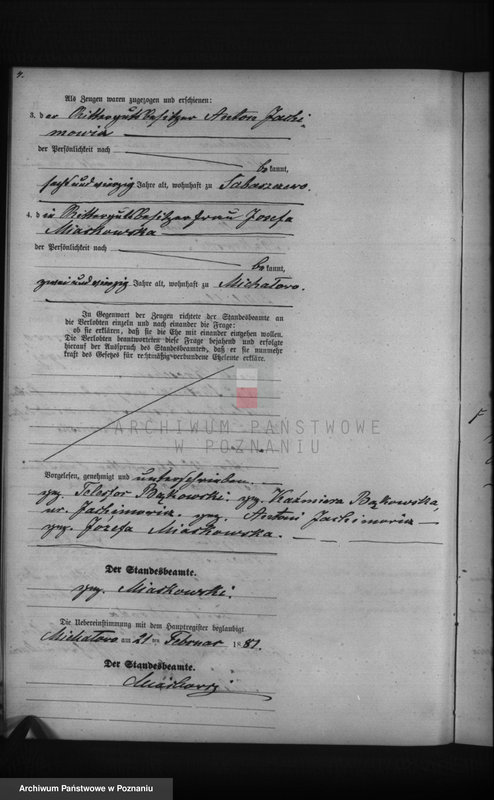 4.
Als Zeugen waren zugezogen und erschienen:
3. der Rittergutsbesitzer Anton Jachi-
mowicz
der Persönlichkeit nach
bekannt,
sechsundvierzig Jahre alt, wohnhaft zu
4. die Rittergutsbesitzerfrau Josefa
Miaskowska
der Persönlichkeit nach
bekannt,
zweiundvierzig Jahre alt, wohnhaft zu
In Gegenwart der Zeugen richtete der Standesbeamte an
die Verlobten einzeln und nach einander die Frage:
ob sie erklären, daß sie die Ehe mit einander eingehen wollen.
Die Verlobten beantworteten diese Frage bejahend und erfolgte
hierauf der Ausspruch des Standesbeamten, daß er sie nunmehr
kraft des Gesetzes für rechtmäßig verbundene Eheleute erkläre.
ARCHIWUM PAŃSTWOWE
W POZNANIU
Vorgelesen, genehmigt und unterschrieben.
gez. Telesfor Bąkowski. gez. Kaźmiera Bąkowska,
ur. Jachimowicz. gez. Antoni Jachimowicz
gez. Józefa Miaskowska.
Der Standesbeamte.
gez. Miaskowski.
Die Uebereinstimmung mit dem Hauptregister beglaubigt
am 21 ten Februar 1881.
Der Standesbeamte.
Miaskowski
Archiwum Państwowe w Poznaniu